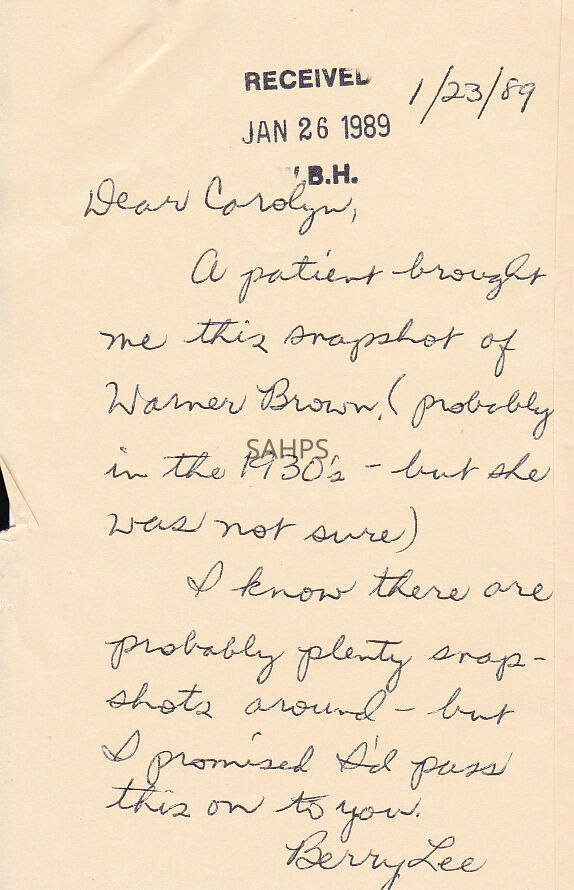 RECEIVED
1/23/89
JAN 26 1989
.B.H.
Dear Carolyn,
A patient brought
me this snapshot of
Warner Brown, (probably
SAHPS
in the 1930's - but she
was not sure)
I know there are
probably plenty snap-
shots around - but
I promised I'd pass
this on to you.
Berry Lee